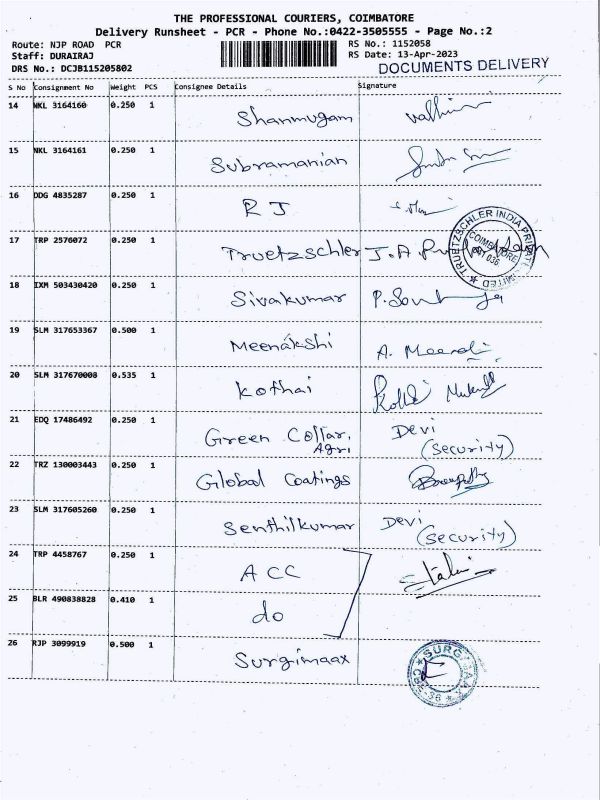 THE PROFESSIONAL COURIERS, COIMBATORE
Delivery Runsheet - PCR - Phone No.:0422-3505555 - Page No.:2
Route: NJP ROAD PCR
RS No.: 1152058
Staff: DURAIRAJ
RS Date: 13-Apr-2023
DRS No.: DCJB115205802
DOCUMENTS DELIVERY
S No Consignment No Weight PCS Consignee Details Signature
14 NKL 3164160 0.250 1 Shanmugam
15 NKL 3164161 0.250 1 Subramanian
16 DDG 4835287 0.250 1 R J
17 TRP 2576072 0.250 1 Truetzschler J.A.
TRUETZSCHLER INDIA PRIVATE LIMITED
COIMBATORE
18 IXM 503430420 0.250 1 Sivakumar
19 SLM 317653367 0.500 1 Meenakshi A. Meenakshi
20 SLM 317670008 0.535 1 Kothai
21 EDQ 17486492 0.250 1 Green Collar, Devi
Agri (Security)
22 TRZ 130003443 0.250 1 Global Coatings
23 SLM 317605260 0.250 1 Senthilkumar Devi
(Security)
24 TRP 4458767 0.250 1 ACC
25 BLR 490838828 0.410 1 do
26 RJP 3099919 0.500 1 Surgimaax
SURGIMAAX
CBE-36